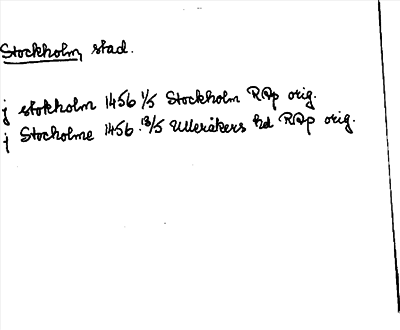 Stockholm, stad.
j stokholm 1456 1/5 Stockholm RAp orig.
j Stocholme 1456 18/5 Ulleråkers hd RAp orig.